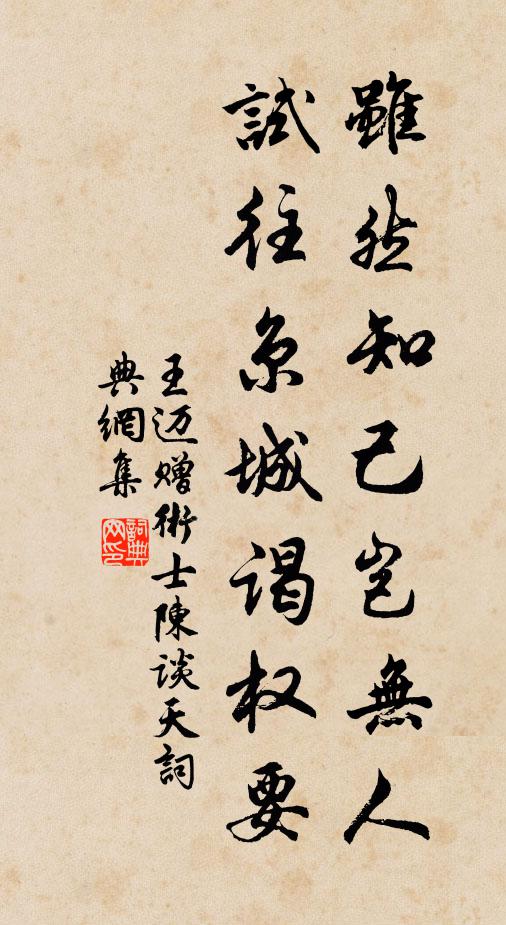 雖然知己豈無人
試往京城謁权要
王迈赠術士陳谈天詞
典網集
詞典
网印